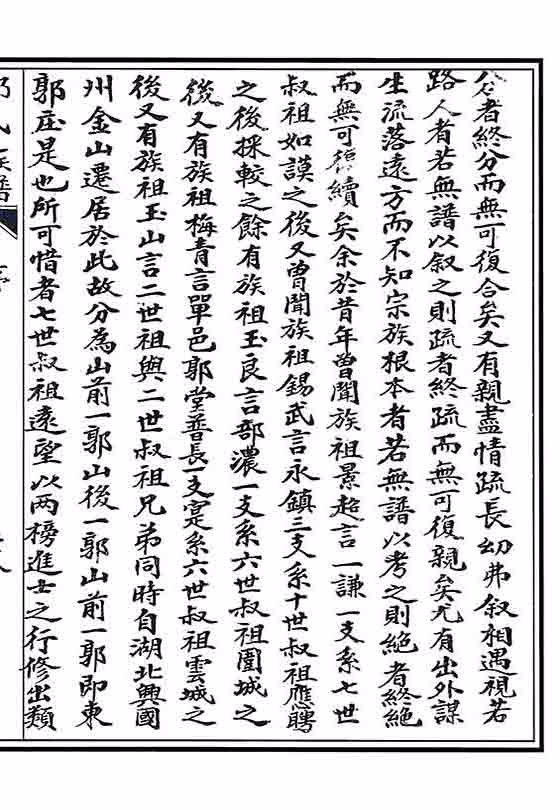 分者終分而無可復合矣又有親盡情疏長幼弗叙相遇視若
路人者若無譜以叙之則疏者終疏而無可復親矣尤有出外謀
生流落遠方而不知宗族根本者若無譜以考之則絶者終絶
而無可復續矣余於昔年曾聞族祖景超言一謙一支系七世
叔祖如謨之後又曾聞族祖錫武言永鎮三支系十世叔祖應聘
之後採較之餘有族祖玉良言部濃一支系六世叔祖圍城之
後又有族祖梅青言單邑郭堂晉長一支寔系六世叔祖雲城之
後又有族祖玉山言二世祖與二世叔祖兄弟同時自湖北興國
州金山遷居於此故分為山前一郭山後一郭山前一郭即東
郭庄是也所可惜者七世叔祖遠望以两榜進士之行修出類
族譜